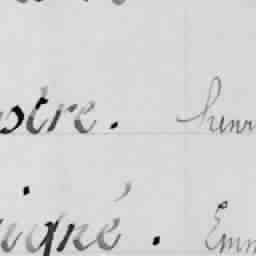 ostre. henr
igné. Emm